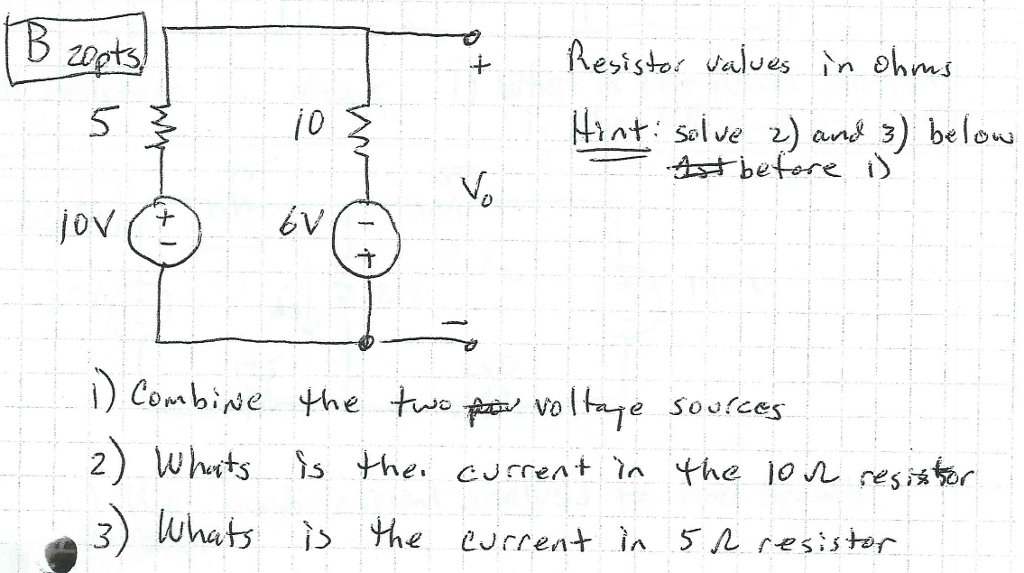 B 20pts
+
Resistor values in ohms
5
10
Hint: solve 2) and 3) below
before 1)
Vo
10V
+
-
6V
-
+
-
1) Combine the two voltage sources
2) Whats is the. current in the 10 Ω resistor
3) Whats is the current in 5 Ω resistor